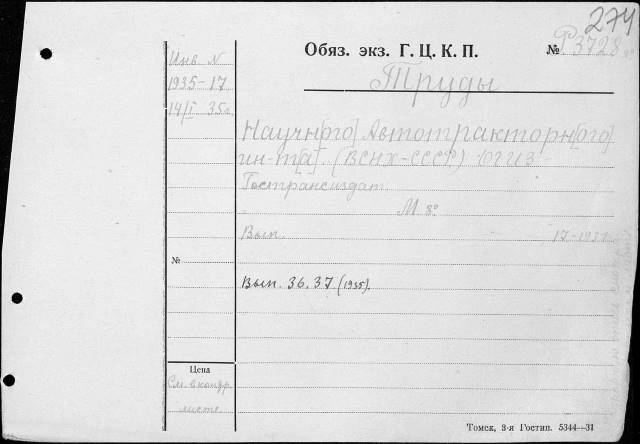 274
Обяз. экз. Г. Ц. К. П.
№ Р3728
Труды
Инв. N
1935-17
14/I 35г.
Научн[ого] Автотракторн[ого]
ин-т[а]. (ВСНХ-СССР.) ОГИЗ-
Гострансиздат.
М 8°
Вып. 17-1931
№
Вып. 36. 37 (1935).
Цена
См. в контр.
листе.
Томск, 3-я Гостип. 5344—31